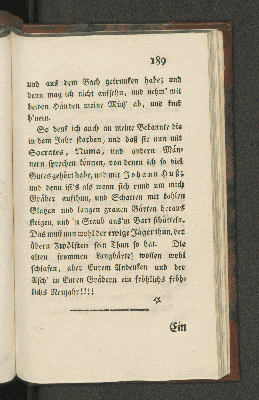 189
und aus dem Bach getrunken habe; und
denn mag ich nicht aufsehn, und nehm' mit
beiden Händen meine Mütz' ab, und kuck
h'nein.
So denk ich auch an meine Bekannte die
in dem Jahr starben, und daß sie nun mit
Socrates, Numa, und andern Män-
nern sprechen können, von denen ich so viel
Gutes gehört habe, und mit Johann Huß;
und denn ist's als wenn sich rund um mich
Gräber aufthun, und Schatten mit kahlen
Glatzen und langen grauen Bärten heraus
steigen, und 'n Staub aus'm Bart schütteln.
Das muß nun wohl der ewige Jäger thun, der
übern Zwölften sein Thun so hat. Die
alten frommen Langbärte; wollen wohl
schlafen, aber Eurem Andenken und der
Asch' in Euren Gräbern ein fröhlichs fröh-
lichs Neujahr!!!!
Ein